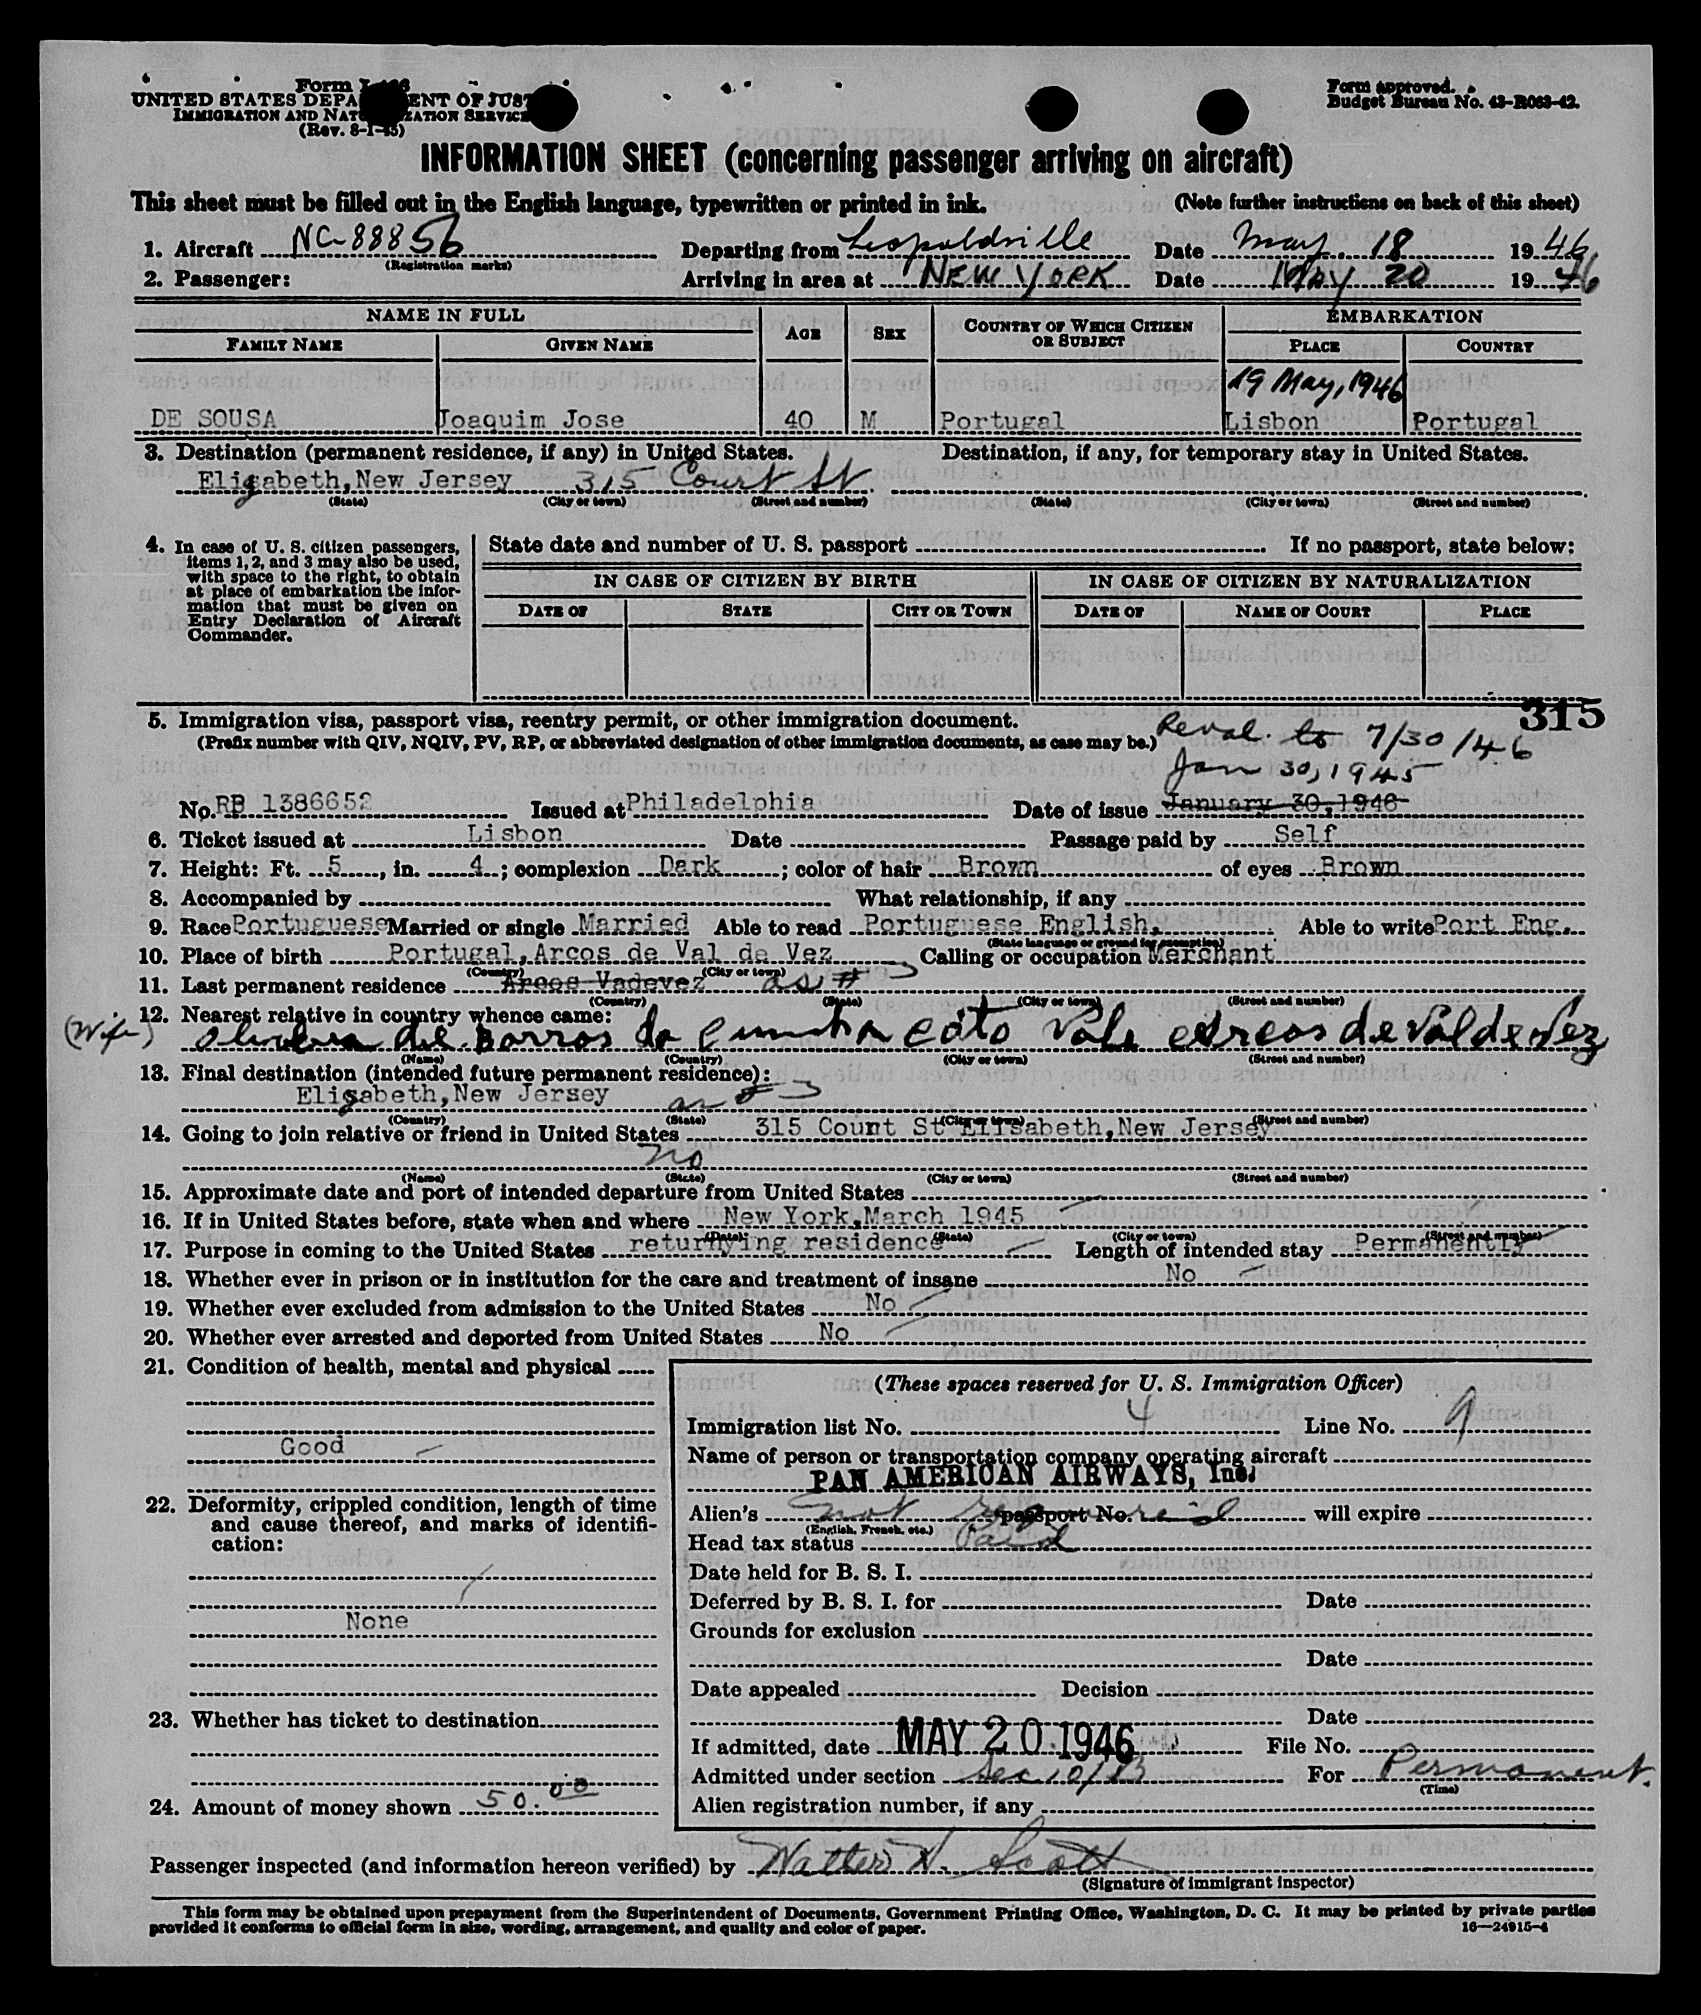 Form I-466
UNITED STATES DEPARTMENT OF JUSTICE
IMMIGRATION AND NATURALIZATION SERVICE
(Rev. 8-1-45)
Form approved.
Budget Bureau No. 43-R063-42.
INFORMATION SHEET (concerning passenger arriving on aircraft)
This sheet must be filled out in the English language, typewritten or printed in ink. (Note further instructions on back of this sheet)
1. Aircraft NC-88856 Departing from Leopoldville Date May 18 1946
(Registration marks)
2. Passenger: Arriving in area at NEW YORK Date MAY 20 1946
NAME IN FULL AGE SEX COUNTRY OF WHICH CITIZEN OR SUBJECT EMBARKATION
FAMILY NAME GIVEN NAME PLACE COUNTRY
19 May, 1946
DE SOUSA Joaquim Jose 40 M Portugal Lisbon Portugal
3. Destination (permanent residence, if any) in United States. Destination, if any, for temporary stay in United States.
Elizabeth, New Jersey 315 Court St
(State) (City or town) (Street and number) (State) (City or town) (Street and number)
4. In case of U. S. citizen passengers, items 1, 2, and 3 may also be used, with space to the right, to obtain at place of embarkation the information that must be given on Entry Declaration of Aircraft Commander.
State date and number of U. S. passport If no passport, state below:
IN CASE OF CITIZEN BY BIRTH IN CASE OF CITIZEN BY NATURALIZATION
DATE OF STATE CITY OR TOWN DATE OF NAME OF COURT PLACE
315
5. Immigration visa, passport visa, reentry permit, or other immigration document.
(Prefix number with QIV, NQIV, PV, RP, or abbreviated designation of other immigration documents, as case may be.)
Reval. to 7/30/46
Jan 30, 1945
No. RB 1386652 Issued at Philadelphia Date of issue January 30, 1946
6. Ticket issued at Lisbon Date Passage paid by Self
7. Height: Ft. 5, in. 4; complexion Dark; color of hair Brown of eyes Brown
8. Accompanied by What relationship, if any
9. Race Portuguese Married or single Married Able to read Portuguese English, Able to write Port Eng.
(State language or ground for exemption)
10. Place of birth Portugal, Arcos de Val de Vez Calling or occupation Merchant
(Country) (City or town)
11. Last permanent residence Arcos Vadevez as # 3
(Country) (State) (City or town) (Street and number)
12. Nearest relative in country whence came:
(Wife) de Barros da Cunha
(Name) (Country) (City or town) (Street and number)
13. Final destination (intended future permanent residence):
Elizabeth, New Jersey as # 3
(Country) (State) (City or town) (Street and number)
14. Going to join relative or friend in United States 315 Count St Elisabeth, New Jersey
no
(Name) (State) (City or town) (Street and number)
15. Approximate date and port of intended departure from United States
16. If in United States before, state when and where New York, March 1945
(Date) (State) (City or town) (Street and number)
17. Purpose in coming to the United States returnying residence Length of intended stay Permanently
18. Whether ever in prison or in institution for the care and treatment of insane No
19. Whether ever excluded from admission to the United States No
20. Whether ever arrested and deported from United States No
21. Condition of health, mental and physical
Good
22. Deformity, crippled condition, length of time and cause thereof, and marks of identification:
None
23. Whether has ticket to destination
24. Amount of money shown 50.00
(These spaces reserved for U. S. Immigration Officer)
Immigration list No. 4 Line No. 9
Name of person or transportation company operating aircraft
PAN AMERICAN AIRWAYS, Inc.
Alien's not passport No. will expire
(English, French, etc.)
Head tax status Paid
Date held for B. S. I.
Deferred by B. S. I. for Date
Grounds for exclusion
Date
Date appealed Decision
Date
If admitted, date MAY 20 1946 File No.
Admitted under section Sec 10/B For Permanent.
(Time)
Alien registration number, if any
Passenger inspected (and information hereon verified) by Walter H. Scott
(Signature of immigrant inspector)
This form may be obtained upon prepayment from the Superintendent of Documents, Government Printing Office, Washington, D. C. It may be printed by private parties
provided it conforms to official form in size, wording, arrangement, and quality and color of paper. 16—24915-4